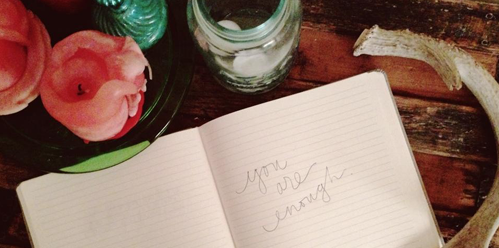 you
are
enough